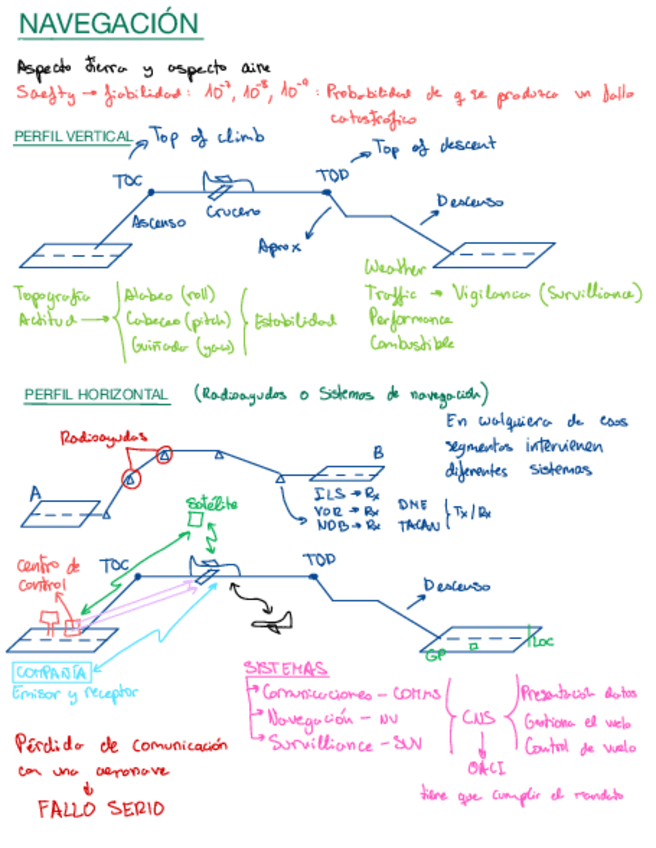 NAVEGACIÓN
Aspecto tierra y aspecto aire
Saefty → fiabilidad: 10⁻⁷, 10⁻⁸, 10⁻⁹ : Probabilidad de q se produzca un fallo
catastrófico
PERFIL VERTICAL
Top of climb
Top of descent
TOC
TOD
Crucero
Ascenso
Descenso
Aprox
Topografía
Actitud →
Alabeo (roll)
Cabeceo (pitch)
Guiñada (yaw)
Estabilidad
Weather
Traffic → Vigilancia (Survilliance)
Performance
Combustible
PERFIL HORIZONTAL (Radioayudas o Sistemas de navegación)
Radioayudas
A
B
En cualquiera de esos
segmentos intervienen
diferentes sistemas
ILS → Rx
VOR → Rx
NDB → Rx
DME
TACAN
Tx/Rx
Satélite
Centro de
control
TOC
TOD
Descenso
LOC
GP
COMPAÑÍA
Emisor y receptor
SISTEMAS
Comunicaciones - COMMS
Navegación - NV
Survilliance - SUV
CNS
OACI
tiene que cumplir el mandato
Presentación datos
Gestiona el vuelo
Control de vuelo
Pérdida de comunicación
con una aeronave
FALLO SERIO